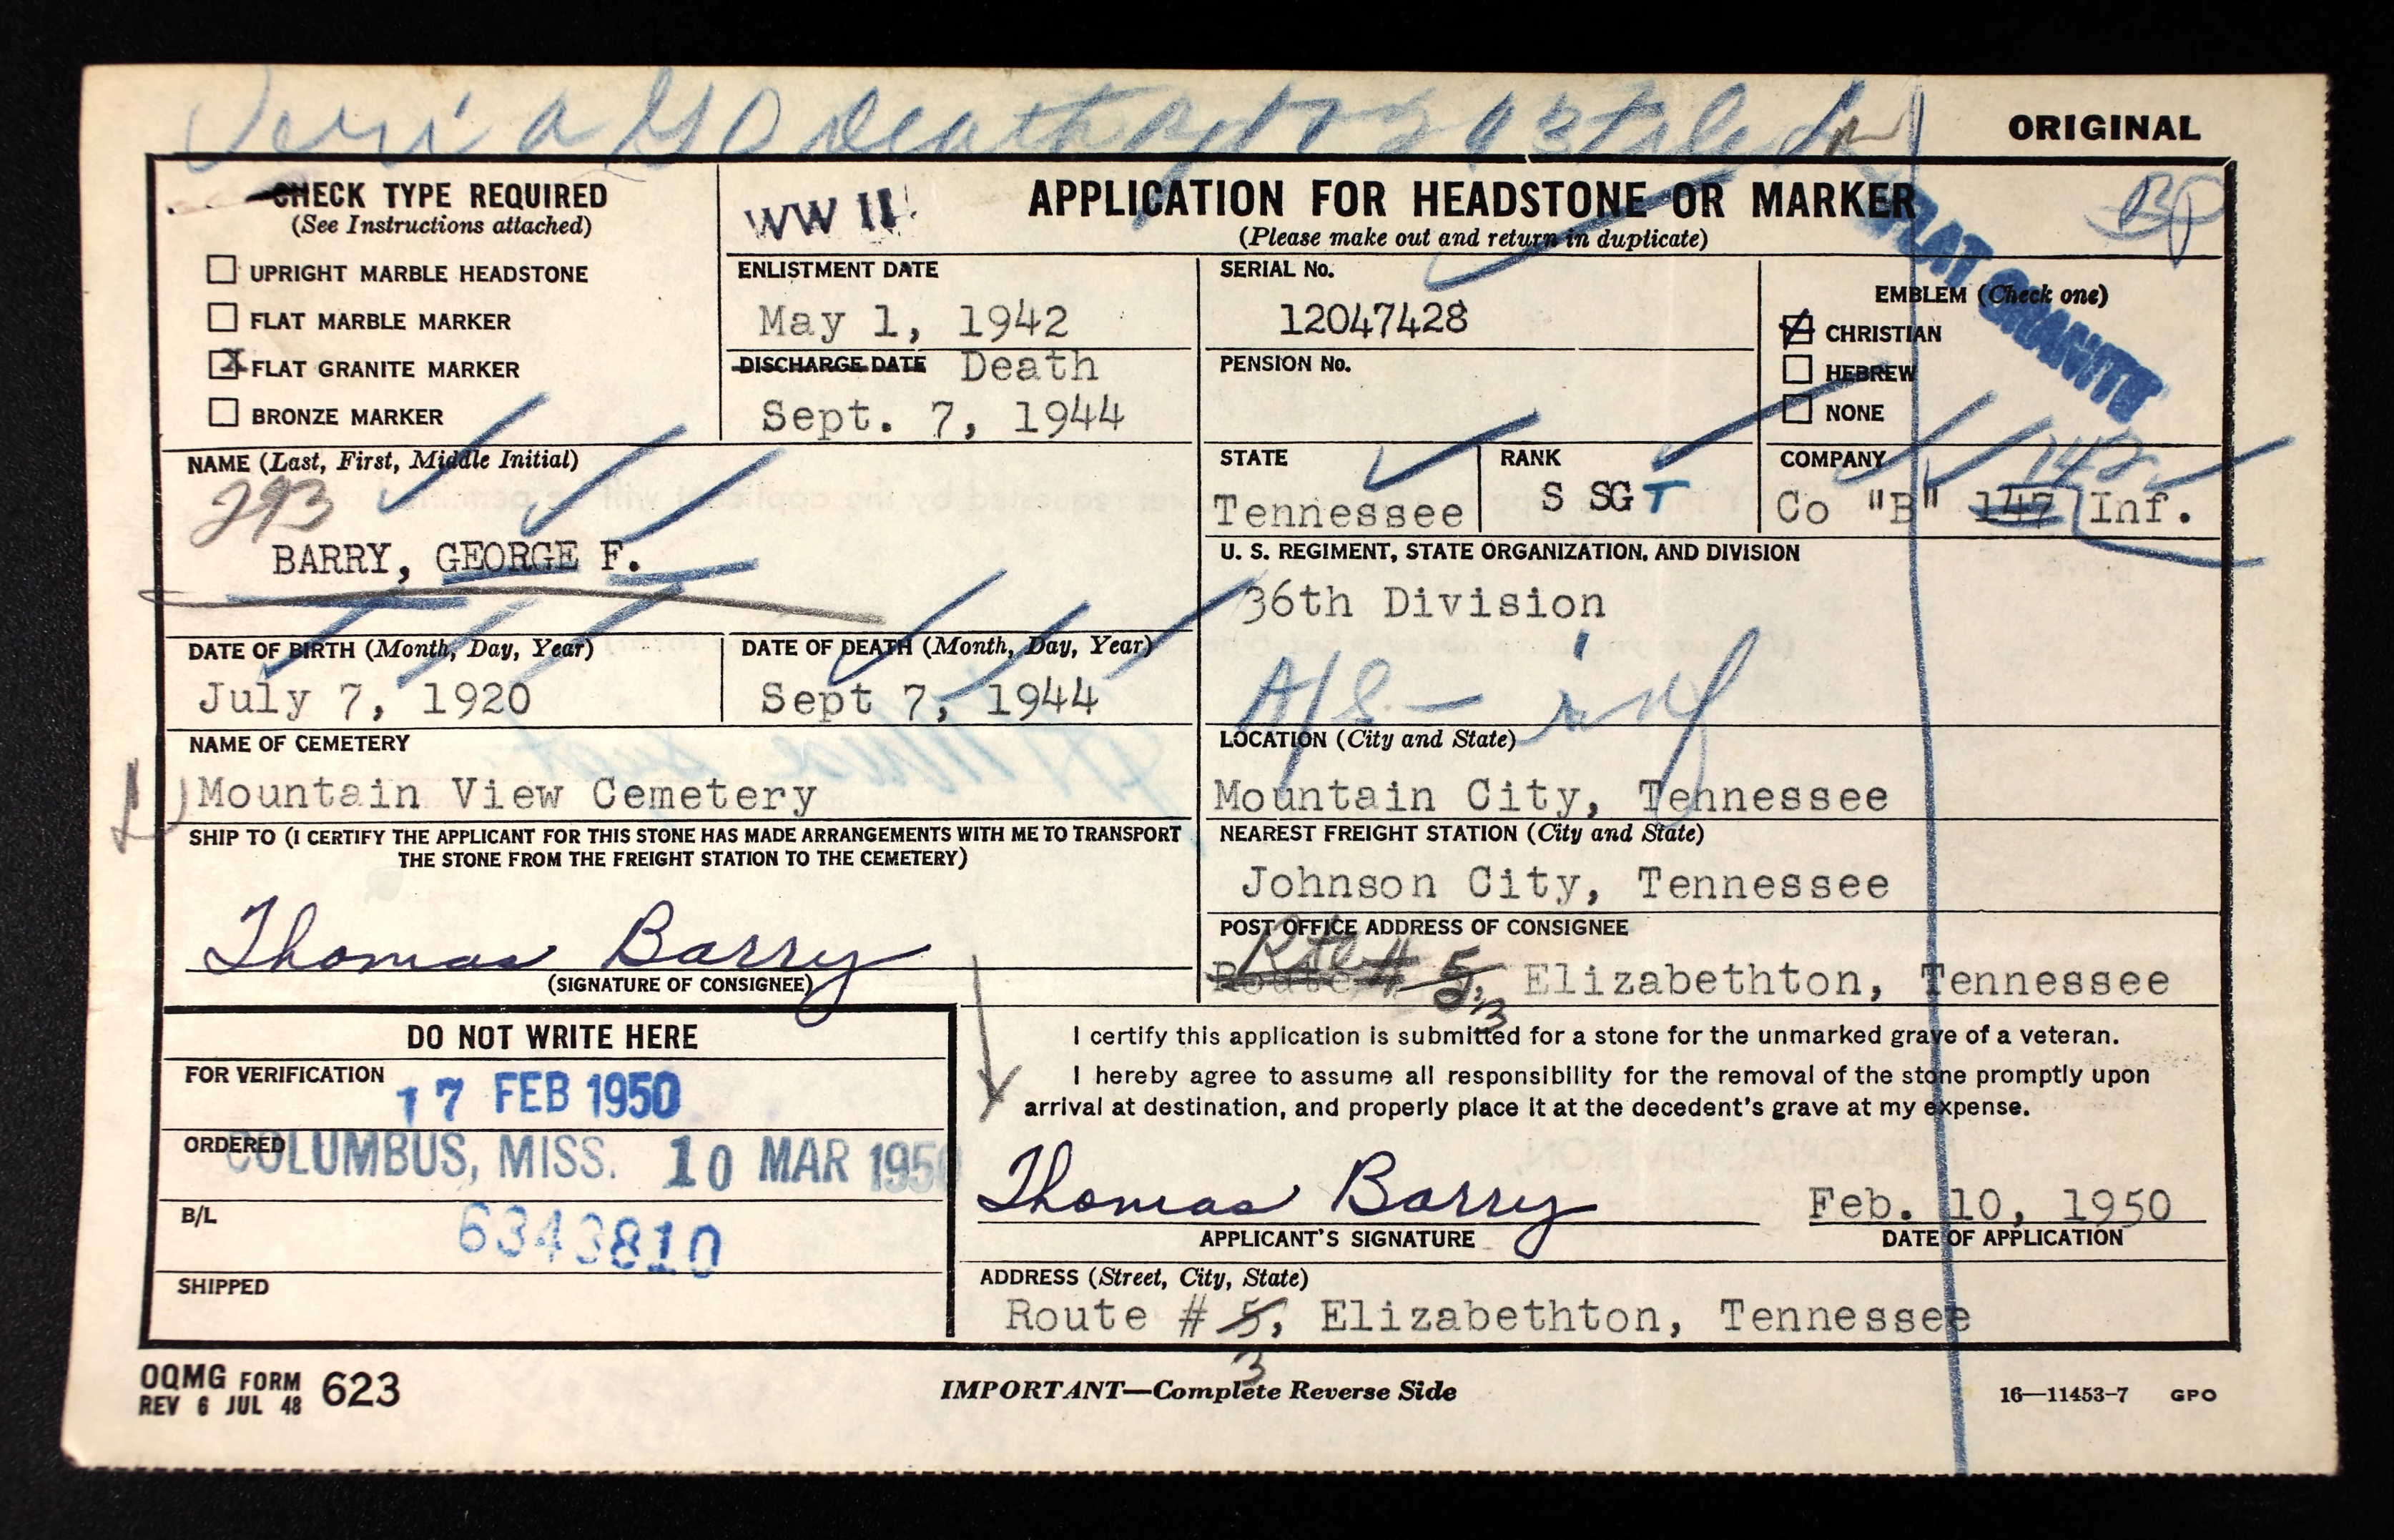 ORIGINAL
CHECK TYPE REQUIRED
(See Instructions attached)
UPRIGHT MARBLE HEADSTONE
FLAT MARBLE MARKER
X FLAT GRANITE MARKER
BRONZE MARKER
WW II
APPLICATION FOR HEADSTONE OR MARKER
(Please make out and return in duplicate)
BP
FLAT GRANITE
ENLISTMENT DATE
May 1, 1942
DISCHARGE DATE Death
Sept. 7, 1944
SERIAL No.
12047428
PENSION No.
EMBLEM (Check one)
CHRISTIAN
HEBREW
NONE
NAME (Last, First, Middle Initial)
293
BARRY, GEORGE F.
STATE
Tennessee
RANK
S SGT
COMPANY
142
Co "B" 147 Inf.
U. S. REGIMENT, STATE ORGANIZATION, AND DIVISION
36th Division
A/S - inf
DATE OF BIRTH (Month, Day, Year)
July 7, 1920
DATE OF DEATH (Month, Day, Year)
Sept 7, 1944
NAME OF CEMETERY
Mountain View Cemetery
LOCATION (City and State)
Mountain City, Tennessee
SHIP TO (I CERTIFY THE APPLICANT FOR THIS STONE HAS MADE ARRANGEMENTS WITH ME TO TRANSPORT
THE STONE FROM THE FREIGHT STATION TO THE CEMETERY)
Thomas Barry
(SIGNATURE OF CONSIGNEE)
NEAREST FREIGHT STATION (City and State)
Johnson City, Tennessee
POST OFFICE ADDRESS OF CONSIGNEE
Rte #
Route # 5, Elizabethton, Tennessee
3
DO NOT WRITE HERE
FOR VERIFICATION
17 FEB 1950
ORDERED
COLUMBUS, MISS. 10 MAR 1950
B/L
6343810
SHIPPED
I certify this application is submitted for a stone for the unmarked grave of a veteran.
I hereby agree to assume all responsibility for the removal of the stone promptly upon
arrival at destination, and properly place it at the decedent's grave at my expense.
Thomas Barry
APPLICANT'S SIGNATURE
Feb. 10, 1950
DATE OF APPLICATION
ADDRESS (Street, City, State)
Route # 5, Elizabethton, Tennessee
3
OQMG FORM 623
REV 6 JUL 48
IMPORTANT—Complete Reverse Side
16—11453-7 GPO